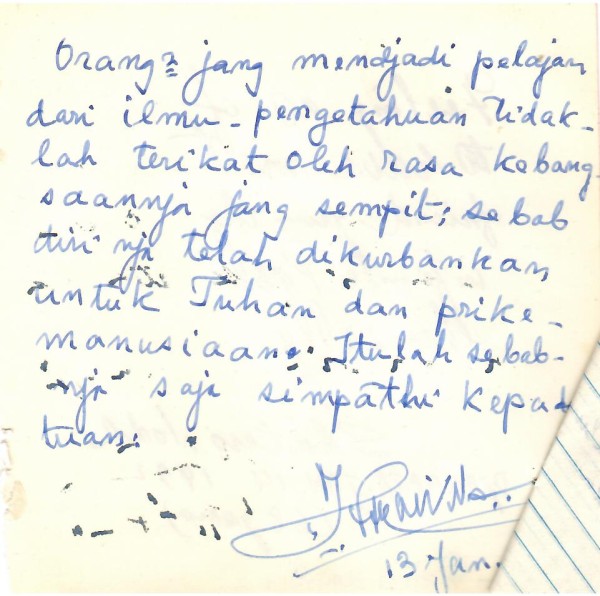 Orang2 jang mendjadi pelajan
dari ilmu-pengetahuan tidak-
lah terikat oleh rasa kebang-
saannja jang sempit; sebab
diri nja telah dikurbankan
untuk Tuhan dan prike-
manusiaan. Itulah sebab-
nja saja simpathi kepada
tuan.
13 Jan.